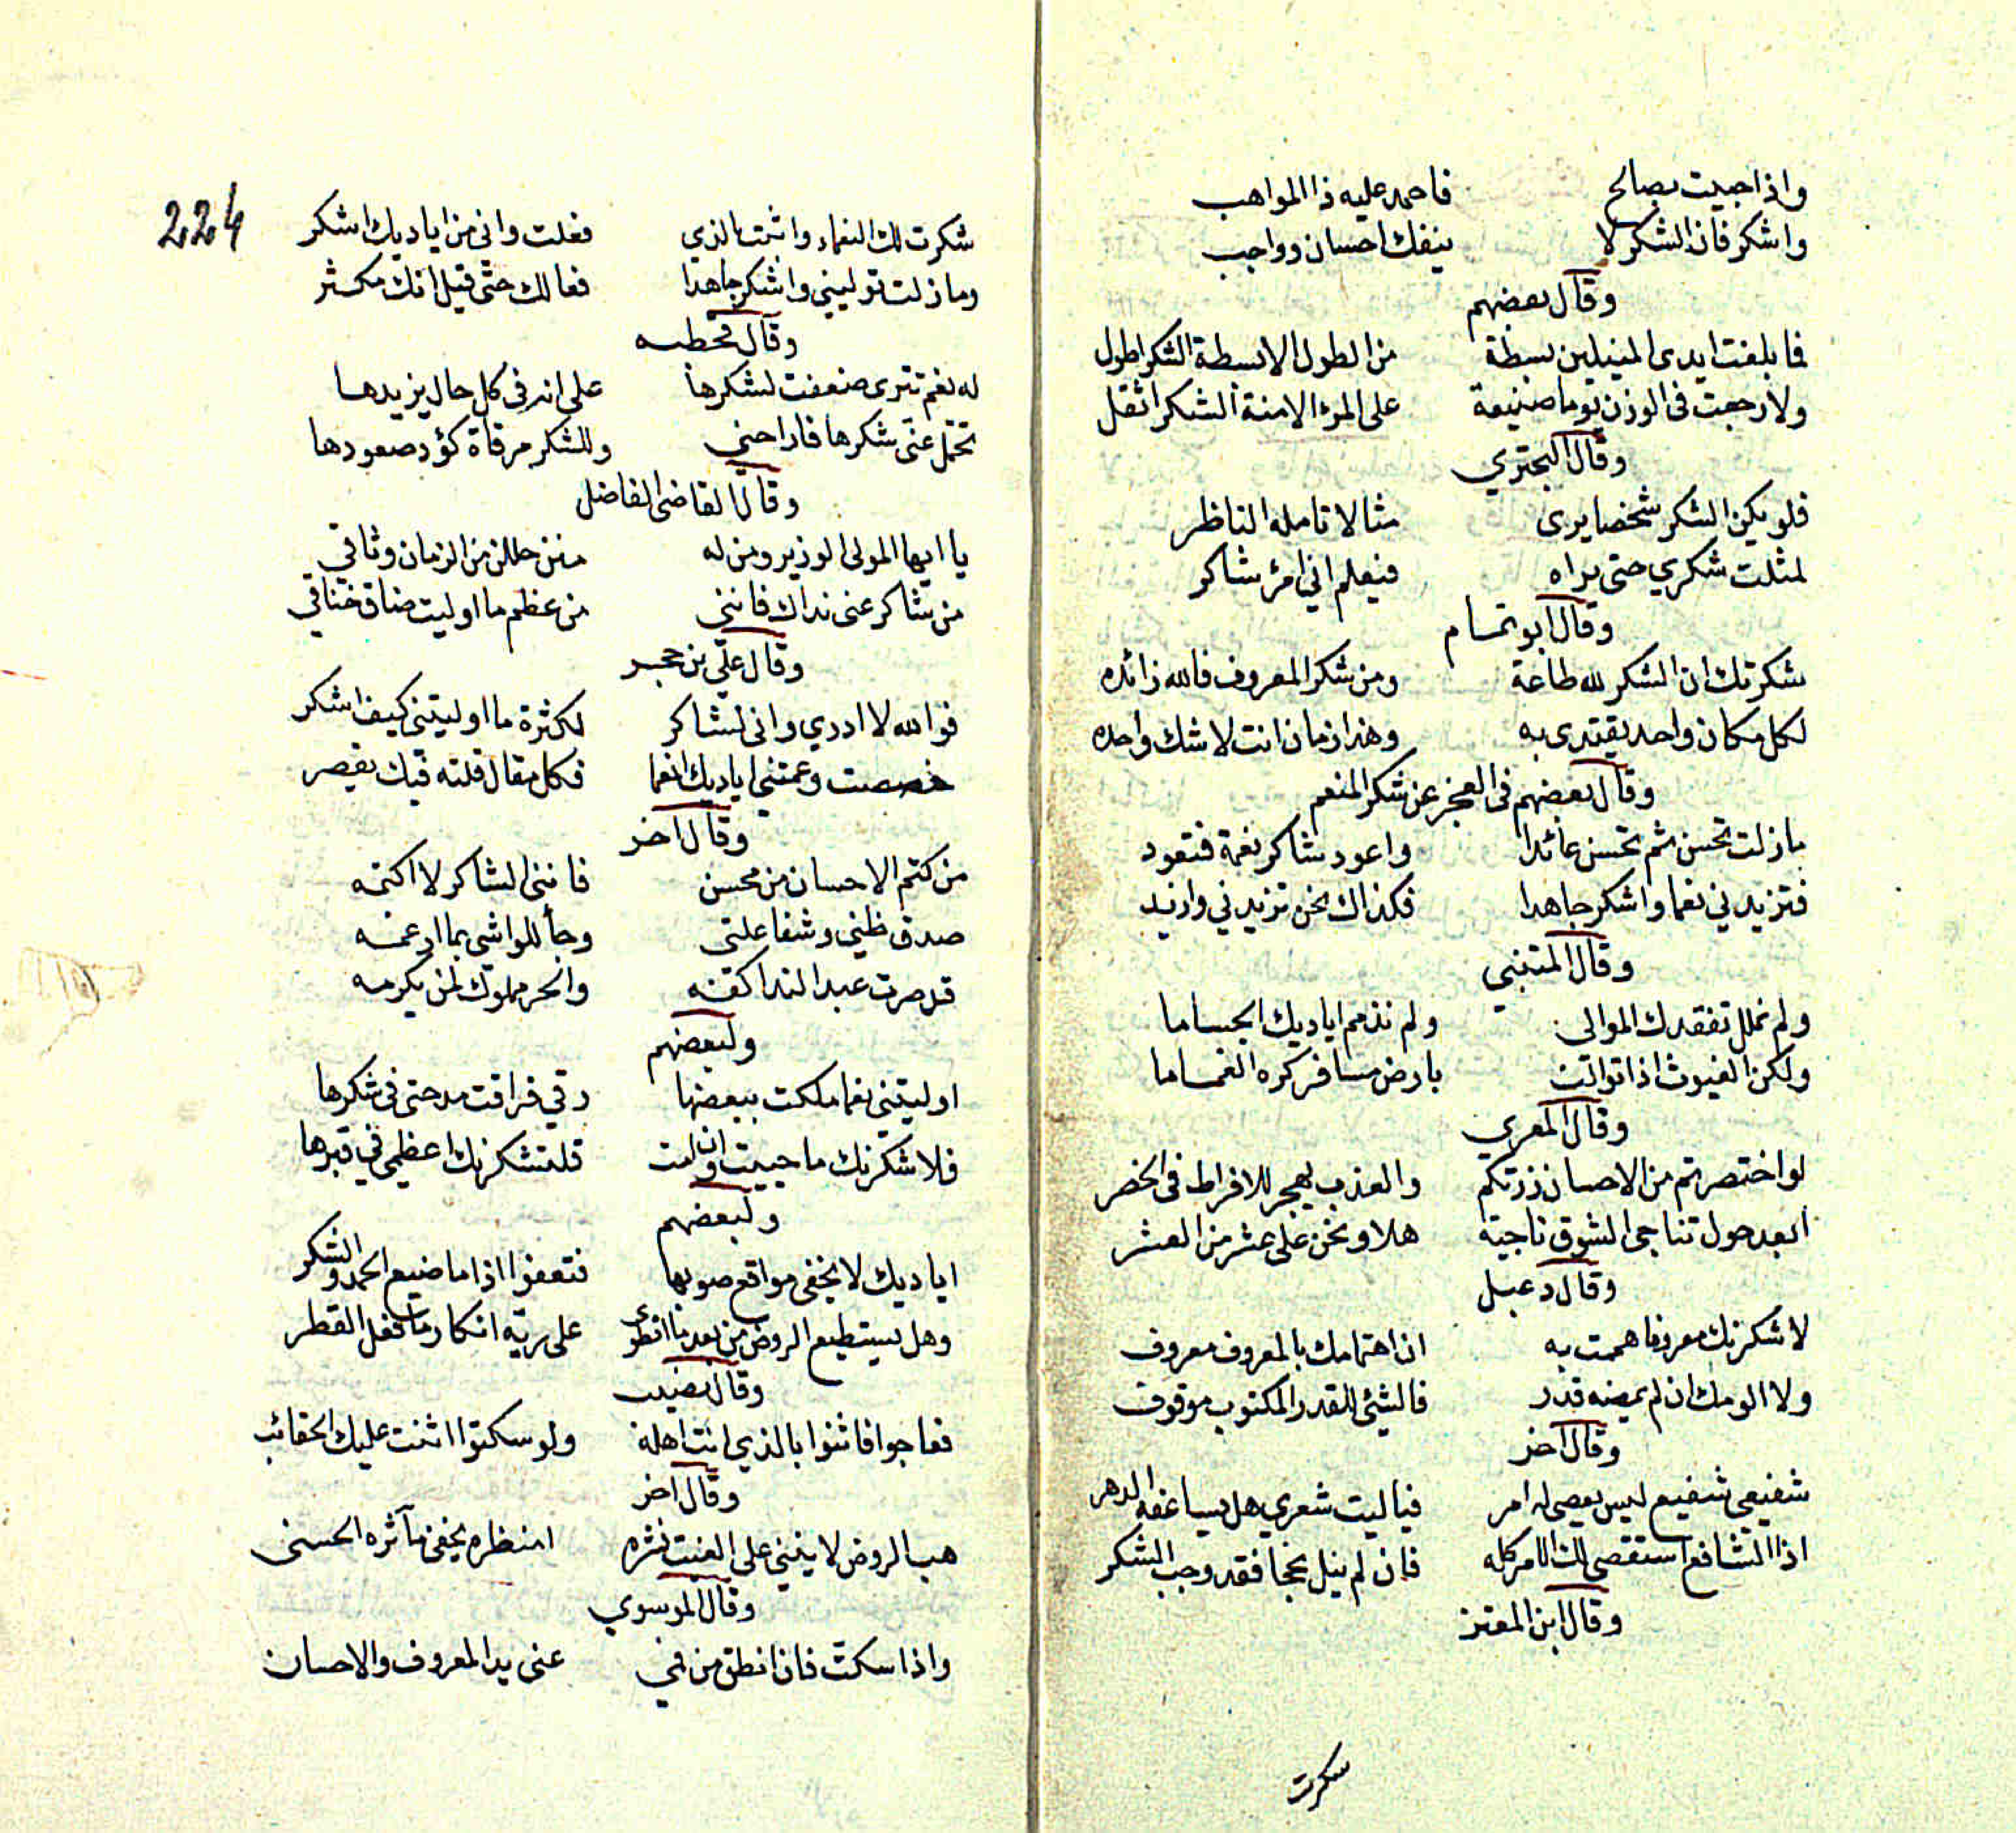 واذا حبيت بصالح فاحمد عليه ذا المواهب
واشكر فان الشكر لا ينفك احسان وواجب
وقال بعضهم
فما بلغت ايدى المنيلين بسطة من الطول الا بسطة الشكر اطول
ولا رجحت فى الوزن يوما صنيعة على المرء الا منة الشكر اثقل
وقال البحتري
فلو يكن الشكر شخصا يرى مثالا تامله الناظر
لمثلت شكري حتى يراه فيعلم اني امرؤ شاكر
وقال ابو تمام
شكرتك ان الشكر لله طاعة ومن شكر المعروف فالله زائده
لكل مكان واحد يقتدى به وهذا زمان انت لا شك واحده
وقال بعضهم فى العجز عن شكر المنعم
ما زلت تحسن ثم تحسن عائدا واعود شاكر نعمة فتعود
فتزيدني نعما واشكر جاهدا فكذاك نحن تزيدني وازيد
وقال المتنبي
ولم نملل تفقدك الموالى ولم نذمم اياديك الجساما
ولكن الغيوث اذا توالت بارض مسافر كره الغماما
وقال المعري
لو اختصرتم من الاحسان زرتكم والعذب يهجر للافراط فى الخصر
ابعد حول تناجى الشوق ناجية هلا ونحن على عشر من العشر
وقال دعبل
لاشكرنك معروفا هممت به ان اهتمامك بالمعروف معروف
ولا الومك ان لم يمضه قدر فالشئ للقدر المكتوب موقوف
وقال آخر
شفيعى شفيع ليس يعصى له امر فياليت شعري هل يساعفه الدهر
اذا الشافع استقصى لك الامر كله فان لم ينل نجحا فقد وجب الشكر
وقال ابن المعتز
شكرت
224
شكرت لك النعماء واثنت بالذي فعلت وانى من اياديك اشكر
وما زلت توليني واشكر جاهدا فعالك حتى قيل انك مكثر
وقال جحظه
له نعم تترى ضعفت لشكرها على انه فى كل حال يزيدها
تحمل عنى شكرها فاراحني وللشكر مرقاة كؤد صعودها
وقال القاضى الفاضل
يا ايها المولى الوزير ومن له منن حللن من الزمان وثاقي
من شاكر عنى نداك فاننى من عظم ما اوليت ضاق خناقي
وقال علي بن حجر
فوالله لا ادري وانى لشاكر لكثرة ما اوليتنى كيف اشكر
خصصت وعمتني اياديك انعما فكل مقال قلته فيك يقصر
وقال آخر
من كتم الاحسان من محسن فاننى الشاكر لا اكتمه
صدق ظني وشفا علتى وجأ للواشى بما ارغمه
قد صرت عبد الندا كفه والحر مملوك لمن يكرمه
ولبعضهم
اوليتنى نعما ملكت ببعضها رقي فراقت مدحتى فى شكرها
فلاشكرنك ما حييت وان امت فلتشكرنك اعظمي في قبرها
ولبعضهم
اياديك لا يخفى مواقع صوبها فتعفوا اذا ما ضيع الحمد والشكر
وهل يستطيع الروض من بعد ما انطوى على ريه انكار ما فعل القطر
وقال نصيب
فعاجوا فاثنوا بالذي انت اهله ولو سكتوا اثنت عليك الحقائب
وقال آخر
هب الروض لا يثنى على الغيث نشره امنظره يخفى مآثره الحسنى
وقال الموسوي
واذا سكت فان انطق من فمي عنى يد المعروف والاحسان